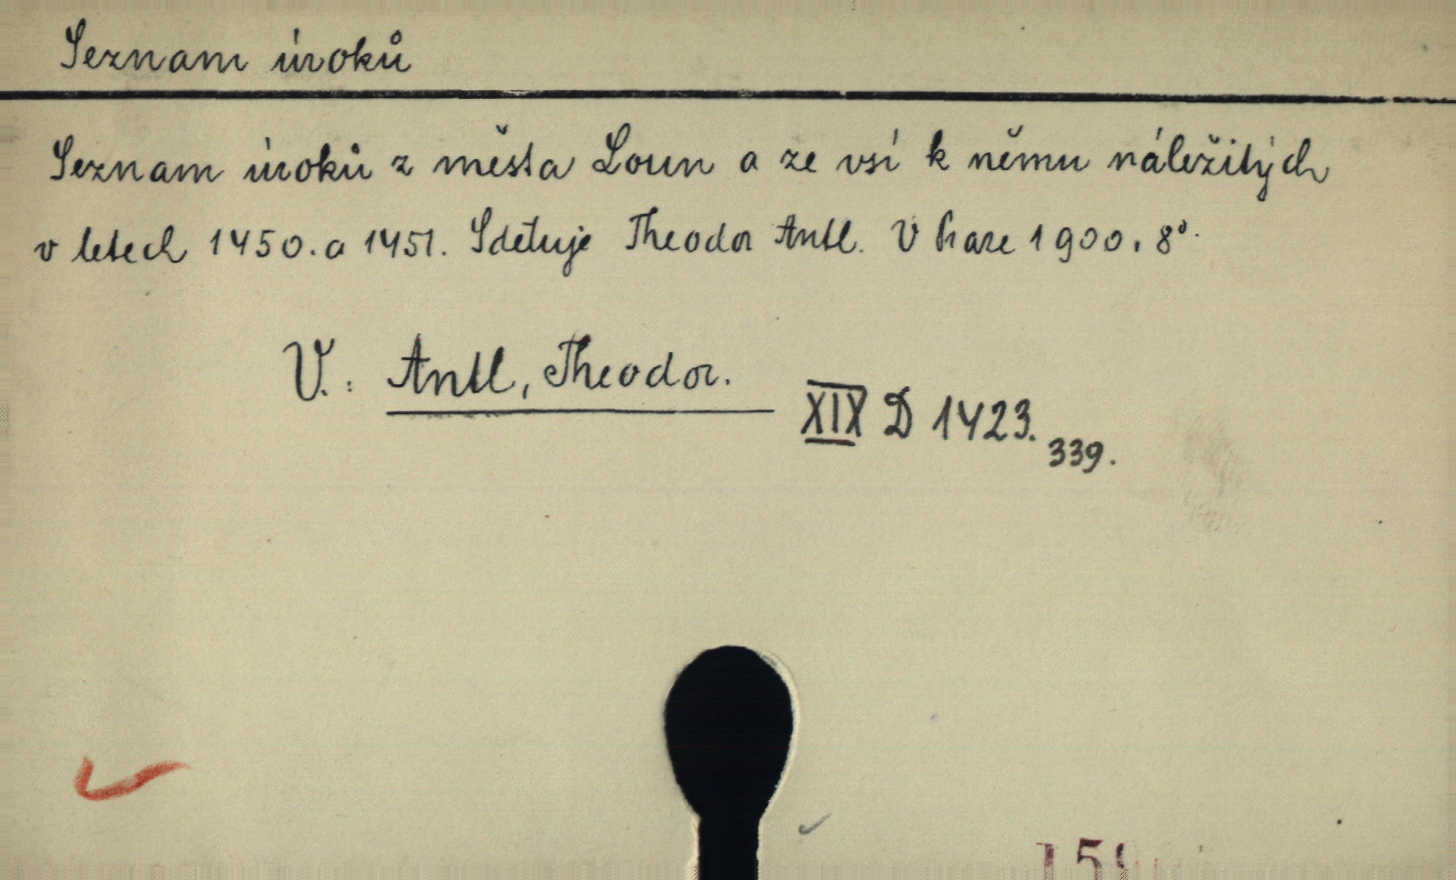 Seznam úroků
Seznam úroků z města Loun a ze vsí k němu náležitých
v letech 1450. a 1451. Sděluje Theodor Antl. V Praze 1900. 8°.
V.: Antl, Theodor.
XIX D 1423.
339.